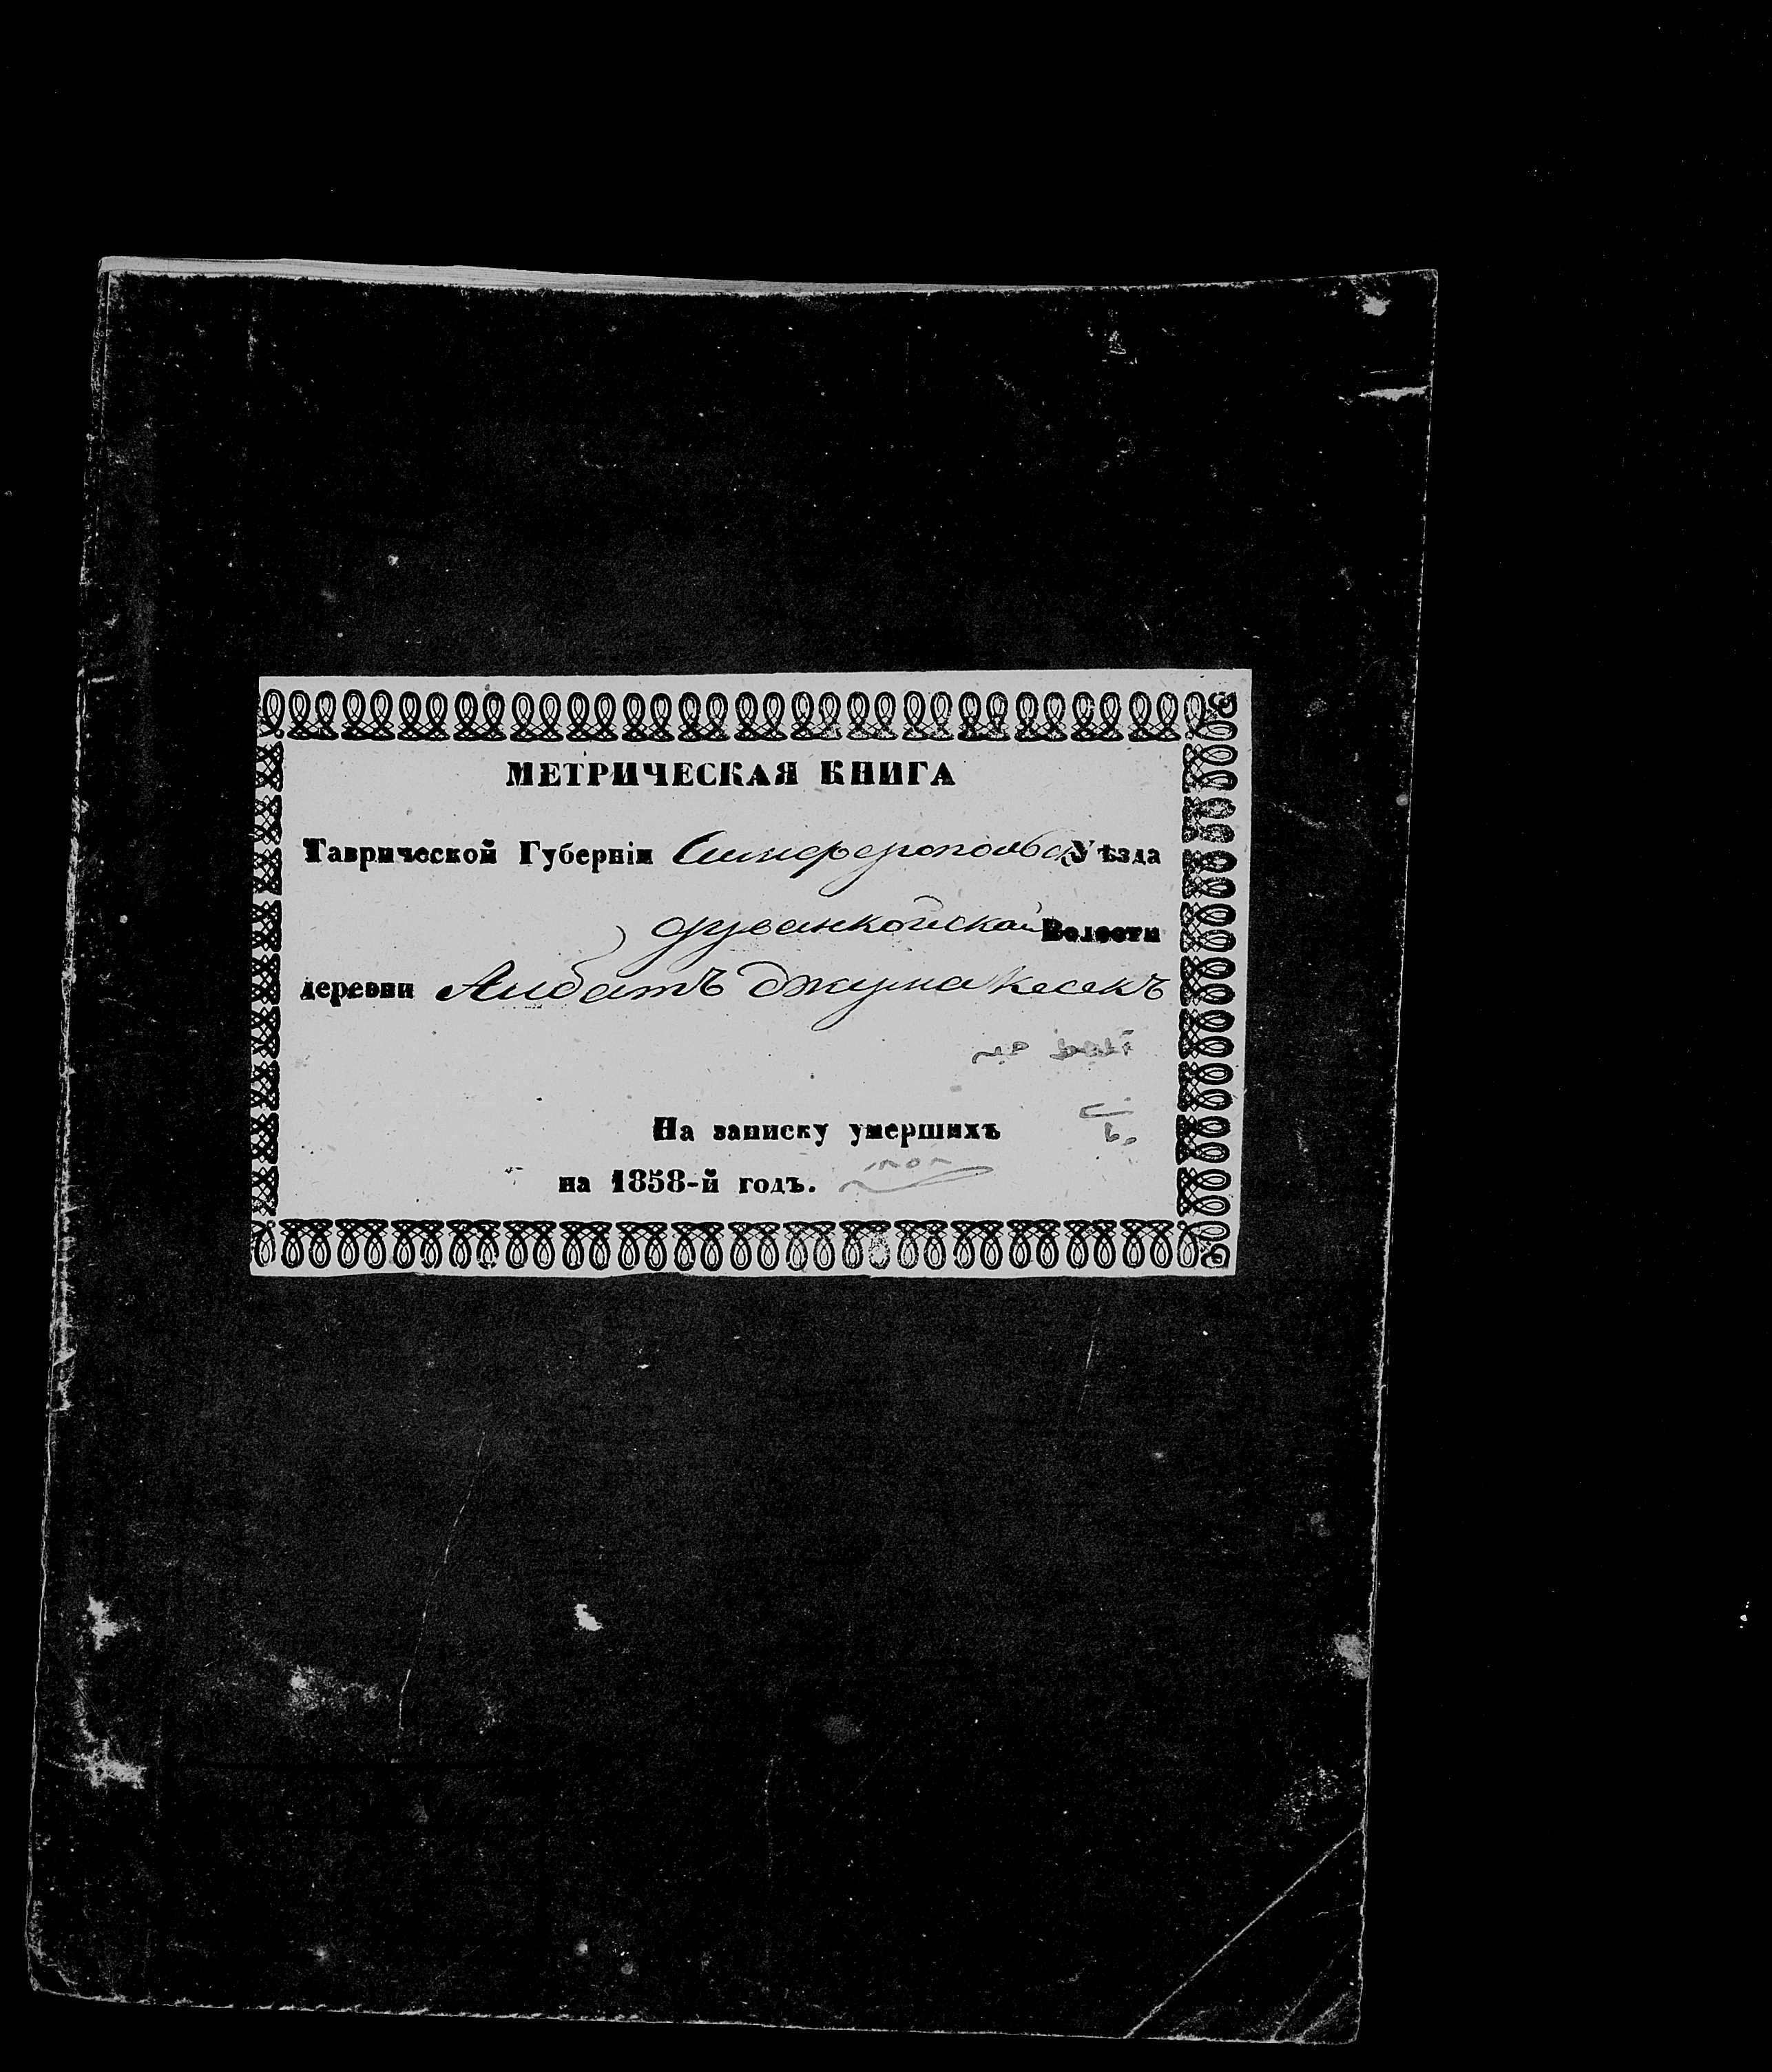 МЕТРИЧЕСКАЯ КНИГА
Таврической Губерніи Симферопольск Уѣзда
дуванкойской Волости
деревни Албатъ джума кесекъ
На записку умершихъ
на 1858-й годъ. ١٨٥٨